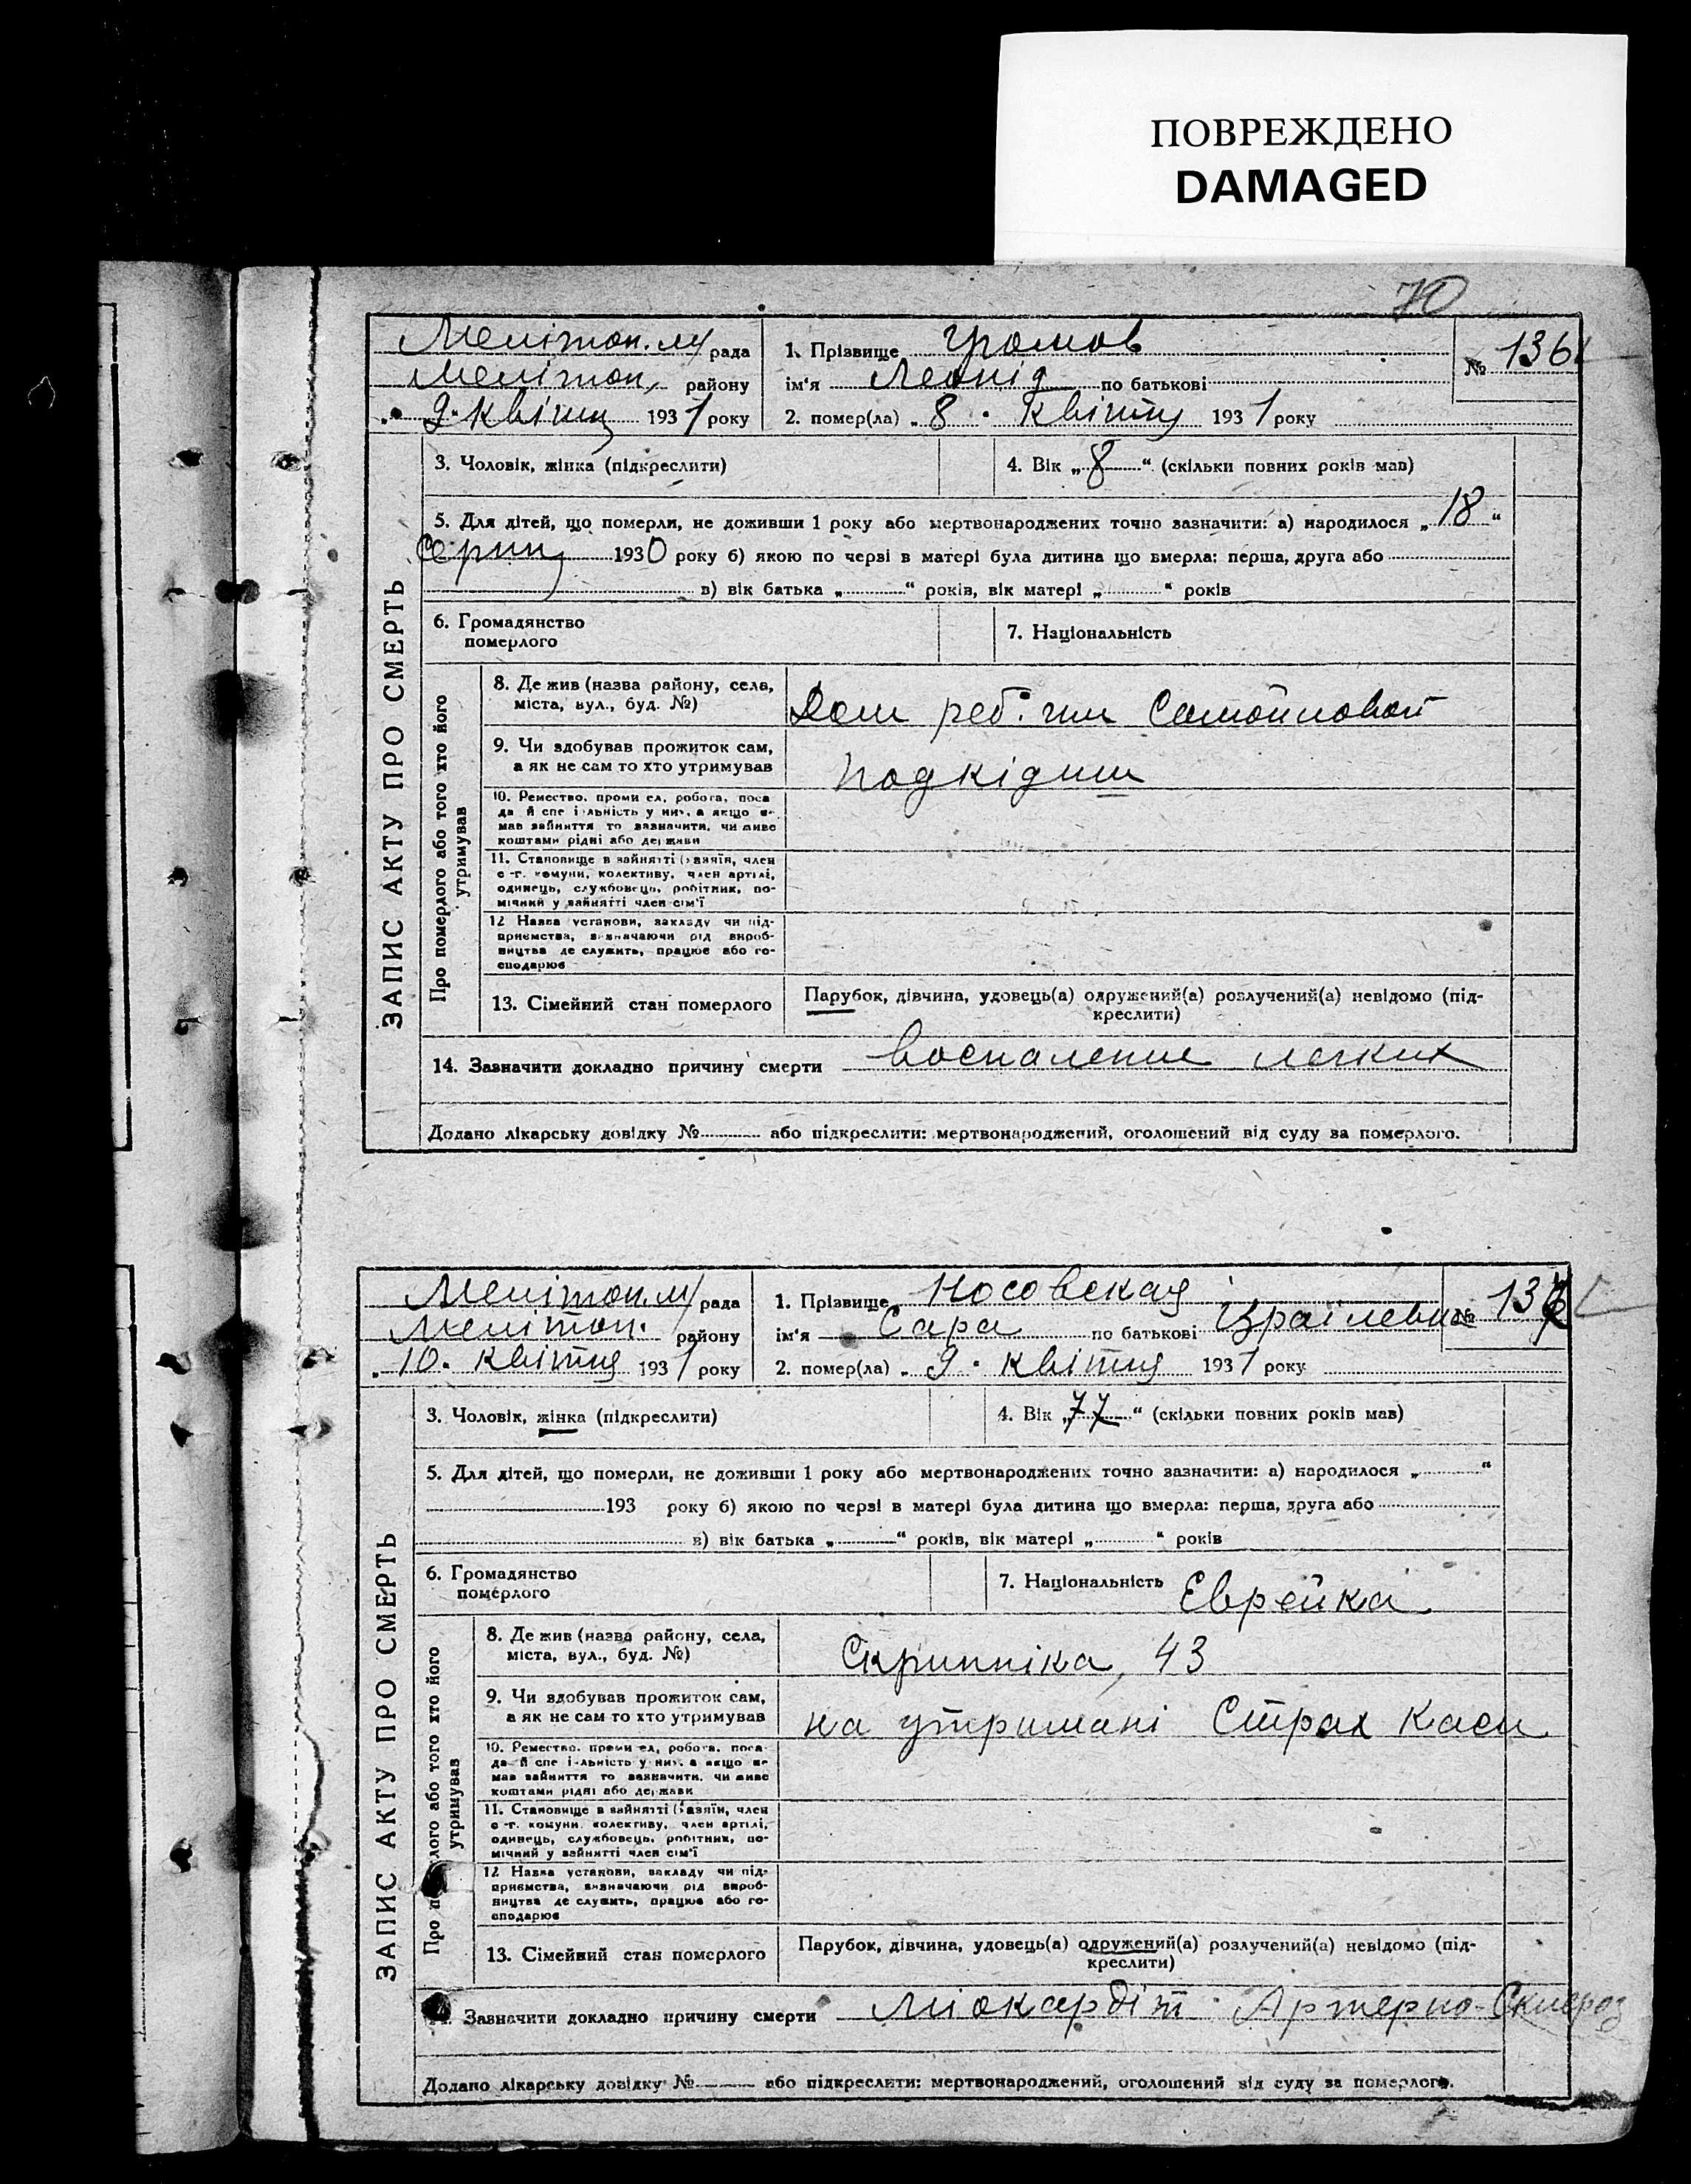 ПОВРЕЖДЕНО
DAMAGED
70
Мелітоп. м/ рада
Мелітоп. району
9. квітня 1931 року
1. Прізвище Громов
ім'я Леонід по батькові
2. помер(ла) „8" квітня 1931 року
№ 136
ЗАПИС АКТУ ПРО СМЕРТЬ
3. Чоловік, жінка (підкреслити)
4. Вік „8" (скільки повних років мав)
5. Для дітей, що померли, не доживши 1 року або мертвонароджених точно зазначити: а) народилося „18"
Серпн 1930 року б) якою по черзі в матері була дитина що вмерла: перша, друга або
в) вік батька „ " років, вік матері „ " років
6. Громадянство
померлого
7. Національність
Про померлого або того хто його
утримував
8. Де жив (назва району, села,
міста, вул., буд. №)
Дом реб. им Самойловой
9. Чи здобував прожиток сам,
а як не сам то хто утримував
Подкідиш
10. Ремество, проми ел, робота, поса
да й спе і льність у них, а якщо н-
мав зайняття то зазначити, чи живе
коштами рідні або держави
11. Становище в зайнятті (хазяїн, член
с-г. комуни, колективу, член артілі,
одинець, службовець, робітник, по-
мічний у зайнятті член сім'ї
12 Назва установи, закладу чи під-
приємства, визначаючи рід вироб-
ництва де служить, працює або го-
сподарює
13. Сімейний стан померлого
Парубок, дівчина, удовець(а) одружений(а) розлучений(а) невідомо (під-
креслити)
14. Зазначити докладно причину смерти воспаление легких
Додано лікарську довідку № або підкреслити: мертвонароджений, оголошений від суду за померлого.
Мелітоп. м/ рада
Мелітоп. району
„10. квітня 1931 року
1. Прізвище Носовская
ім'я Сара по батькові Ізраілевна
2. помер(ла) „9" квітня 1931 року
№ 137
ЗАПИС АКТУ ПРО СМЕРТЬ
3. Чоловік, жінка (підкреслити)
4. Вік „77" (скільки повних років мав)
5. Для дітей, що померли, не доживши 1 року або мертвонароджених точно зазначити: а) народилося „ "
193 року б) якою по черзі в матері була дитина що вмерла: перша, друга або
в) вік батька „ " років, вік матері „ " років
6. Громадянство
померлого
7. Національність Еврейка
Про по лого або того хто його
утримував
8. Де жив (назва району, села,
міста, вул., буд. №)
Скрипніка, 43
9. Чи здобував прожиток сам,
а як не сам то хто утримував
на утримані Страх Каси
10. Ремество, проми ел, робота, поса-
да й спе і льність у них, а якщо н-
мав зайняття то зазначити, чи живе
коштами рідні або держави
11. Становище в зайнятті (хазяїн, член
с-г. комуни, колективу, член артілі,
одинець, службовець, робітник, по-
мічний у зайнятті член сім'ї
12 Назва установи, закладу чи під-
приємства, визначаючи рід вироб-
ництва де служить, працює або го-
сподарює
13. Сімейний стан померлого
Парубок, дівчина, удовець(а) одружений(а) розлучений(а) невідомо (під-
креслити)
14. Зазначити докладно причину смерти Міокардіт. Артерио-Склероз
Додано лікарську довідку № або підкреслити: мертвонароджений, оголошений від суду за померлого.